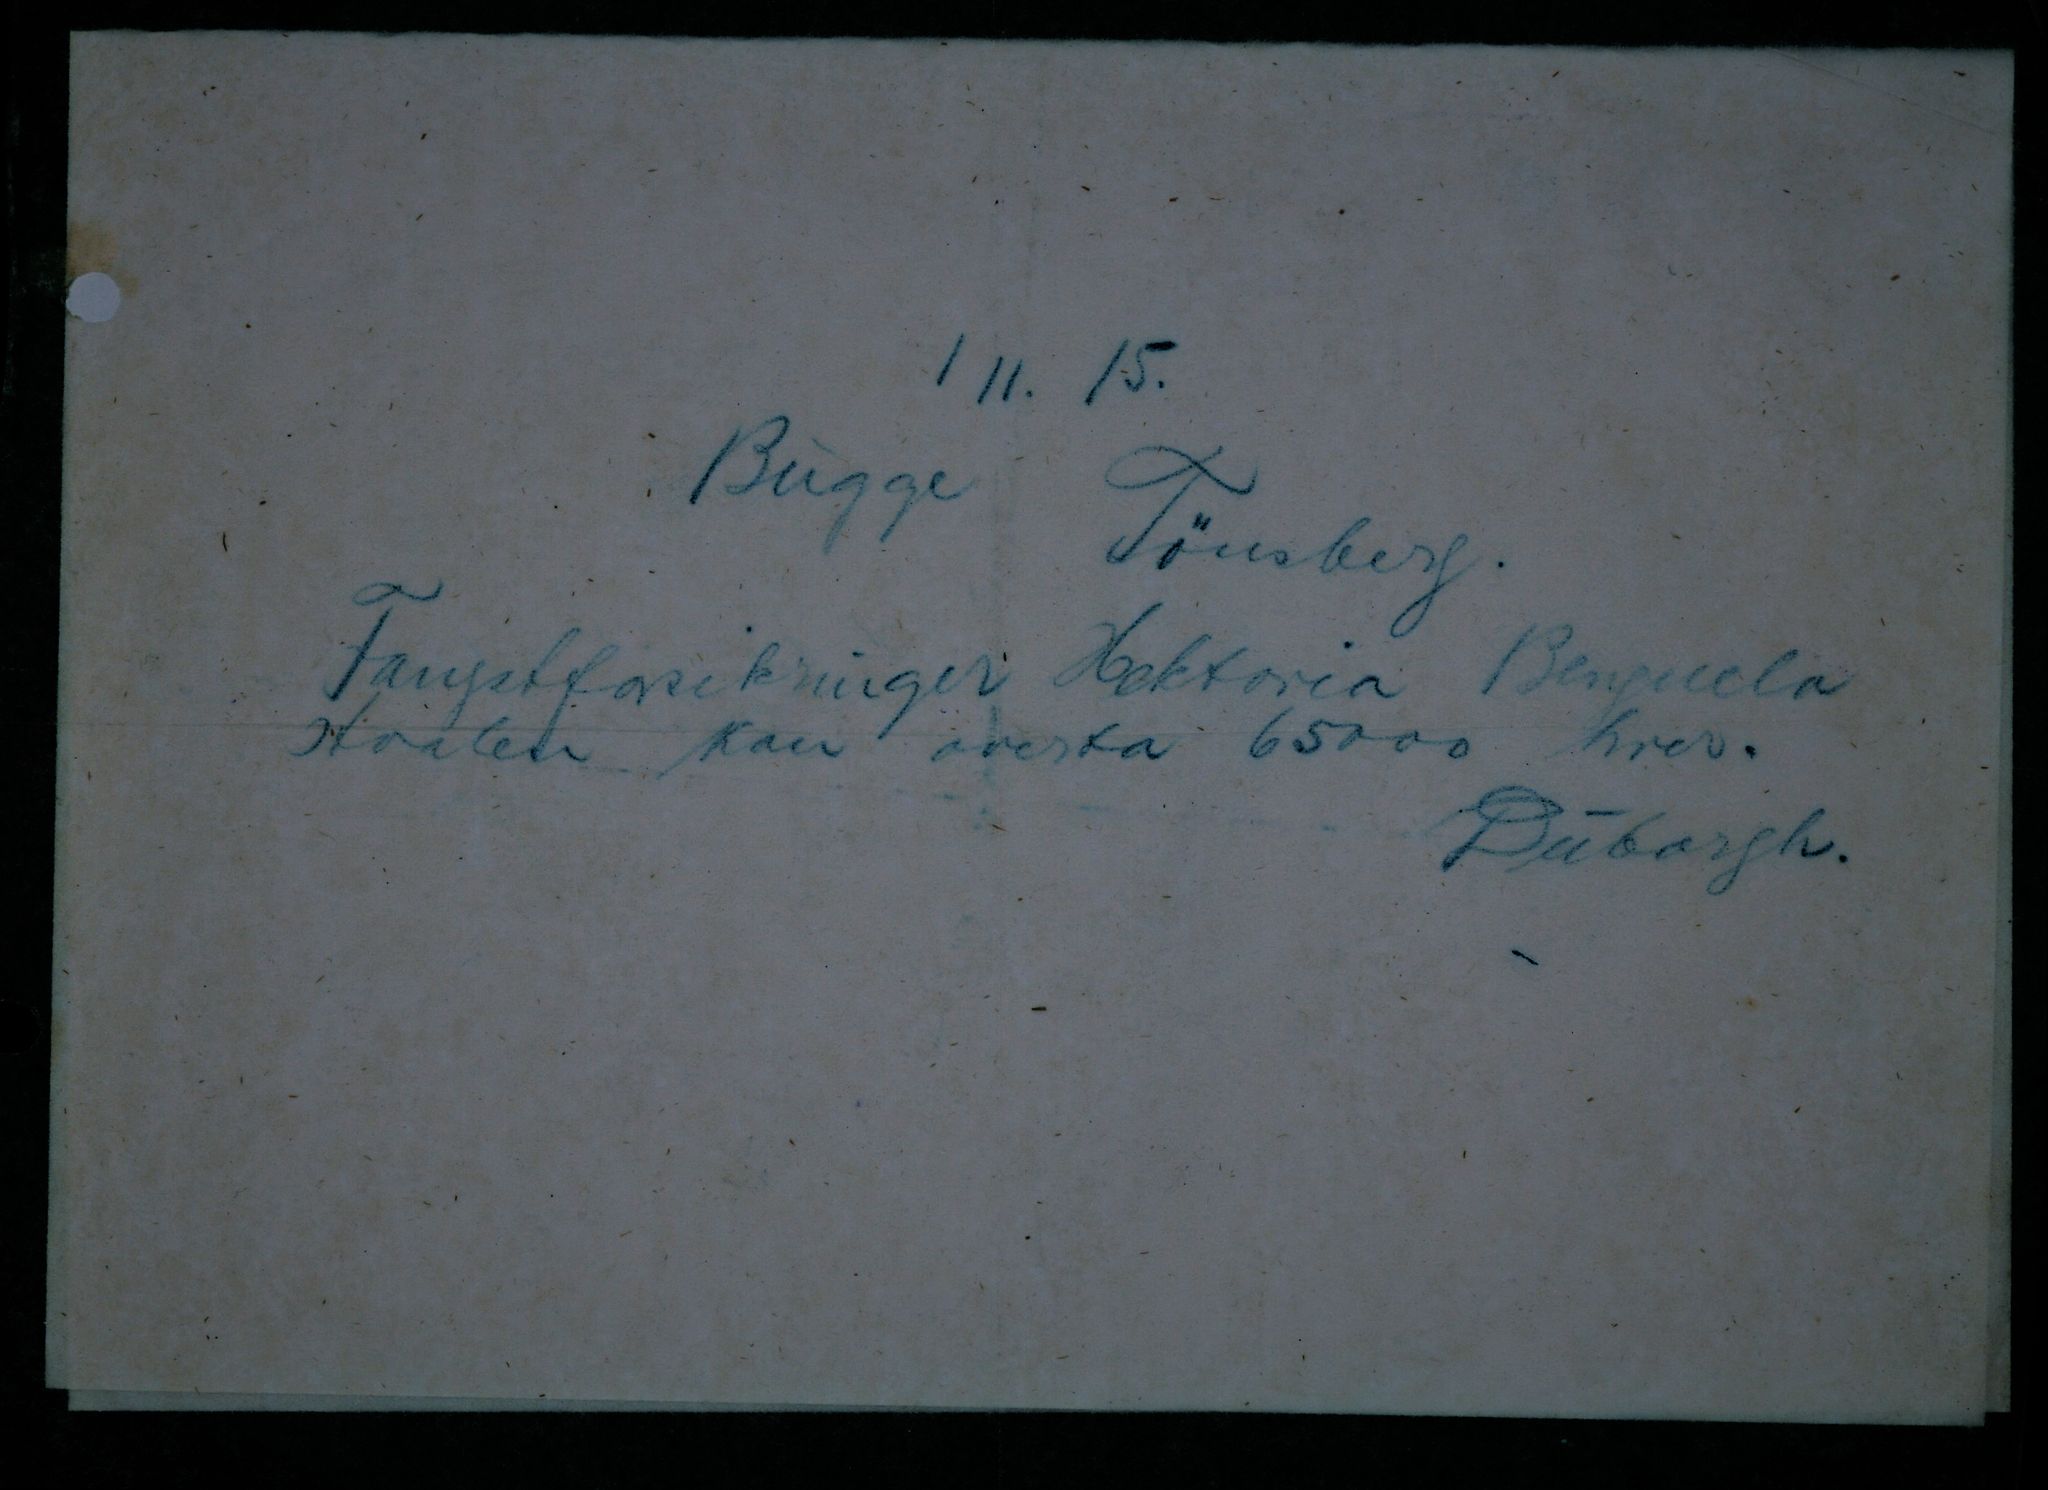 1 11. 15.
Bugge Tönsberg.
Fangstforsikringer Hektoria Benguela
Hvalen kan overta 65000 hver.
Duborgh.